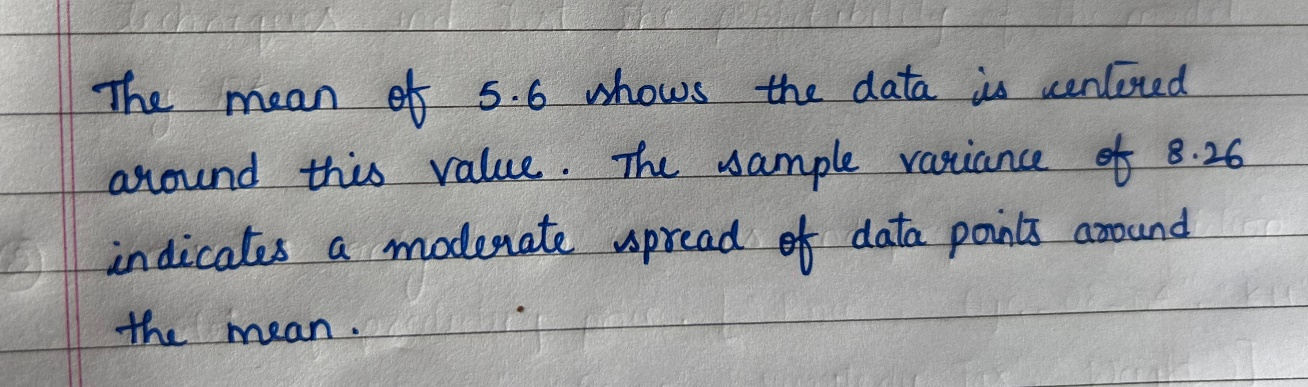 The mean of 5.6 shows the data is centered
around this value. The sample variance of 8.26
indicates a moderate spread of data points around
the mean.